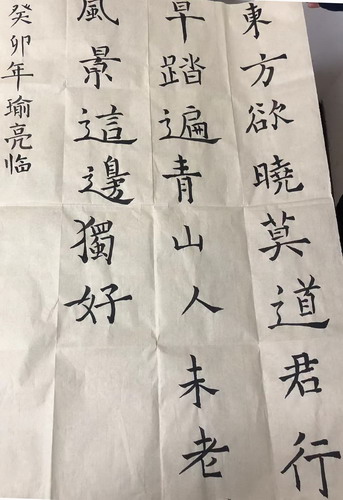 東方欲曉莫道君行
早踏遍青山人未老
風景這邊獨好
癸卯年瑜亮临